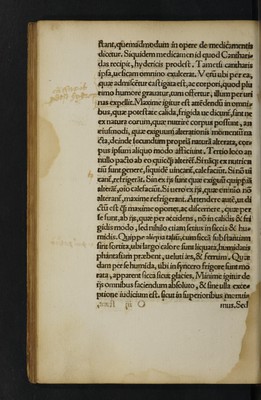 stant, quemadmodum in opere de medicamentis
dicetur. Siquidem medicamen id quod Cantharidas recipit, hydericis prodest. Tametsi cantharis
ipsa, uesicam omnino exulcerat. Verũ ubi per ea,
quæ admiscẽtur castigata est, ac corpori, quod plurimo humore grauatur, tum offertur, illum per urinas expellit. Maxime igitur est attẽdendũ in omnibus, quæ potestate calida, frigida ue dicunt̃, sunt ne
ex natura eorum, quæ nutrire corpus possunt, an
eiusmodi, quæ exiguum alterationis momentũ nacta, deinde secundum propriã naturã alterata, corpus ipsum aliquo modo afficiunt. Tertio loco an
nullo pacto ab eo
sint genere, siquidẽ uincunt̃, calefaciunt. Si nõ uincant̃, refrigerãt. Sin ex ijs sunt quæ exiguũ quippiã
alterãt̃, oĩo calefaciũt. Si uero ex ijs, quæ omnino nõ
alterant̃, maxime refrigerant. Attendere autẽ, ut dictũ est
se sunt, ab ijs, quæ per accidens, nõ in calidis & frigidis modo, sed nihilo etiam secius in siccis & humidis. Quippe aliqua taliũ, cum siccã substantiam
sint sortita, ubi largo calore sunt liquata, humiditatis
phantasiam præbent, ueluti æs, & ferrum. Quædam per se humida, ubi in syncero frigore sunt morata, apparent sicca sicut glacies. Minime igitur de
ijs omnibus faciendum absoluto, & sine ulla exceptione iudicium est, sicut in superioribus
O iij mus. Sed